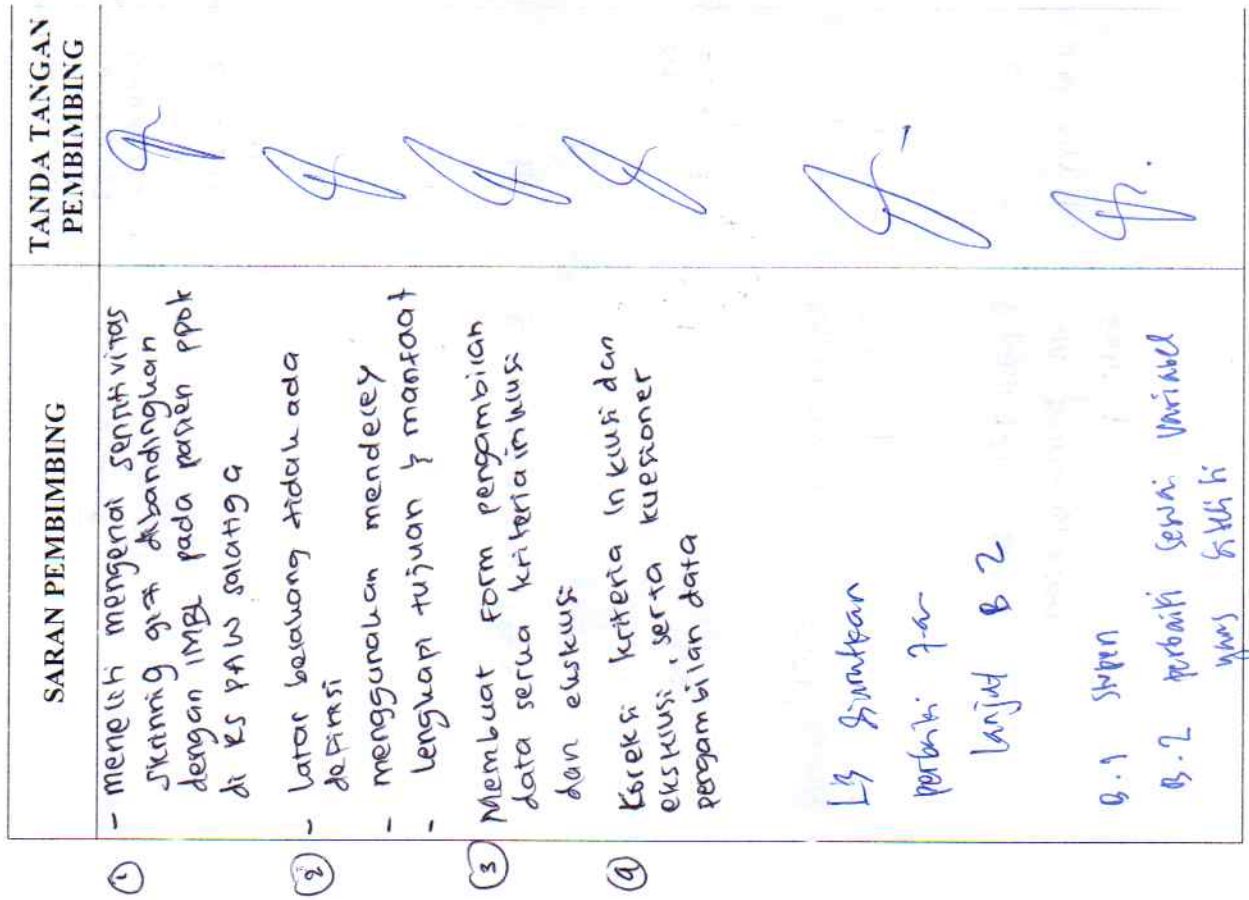 SARAN PEMBIMBING
TANDA TANGAN
PEMBIMBING
① - meneliti mengenai sensitivitas
skrining gizi dibandingkan
dengan IMBL pada pasien ppok
di RS PAW salatiga
② - Latar belakang tidak ada
definisi
- menggunakan mendeley
- Lengkapi tujuan & manfaat
③ Membuat Form pengambilan
data sesuai kriteria inklusi
dan eksklusi
④ Koreksi kriteria Inklusi dan
eksklusi, serta kuesioner
pengambilan data
LB
perbaiki
lanjut B 2
B.1
B.2 perbaiki sesuai variabel
yang